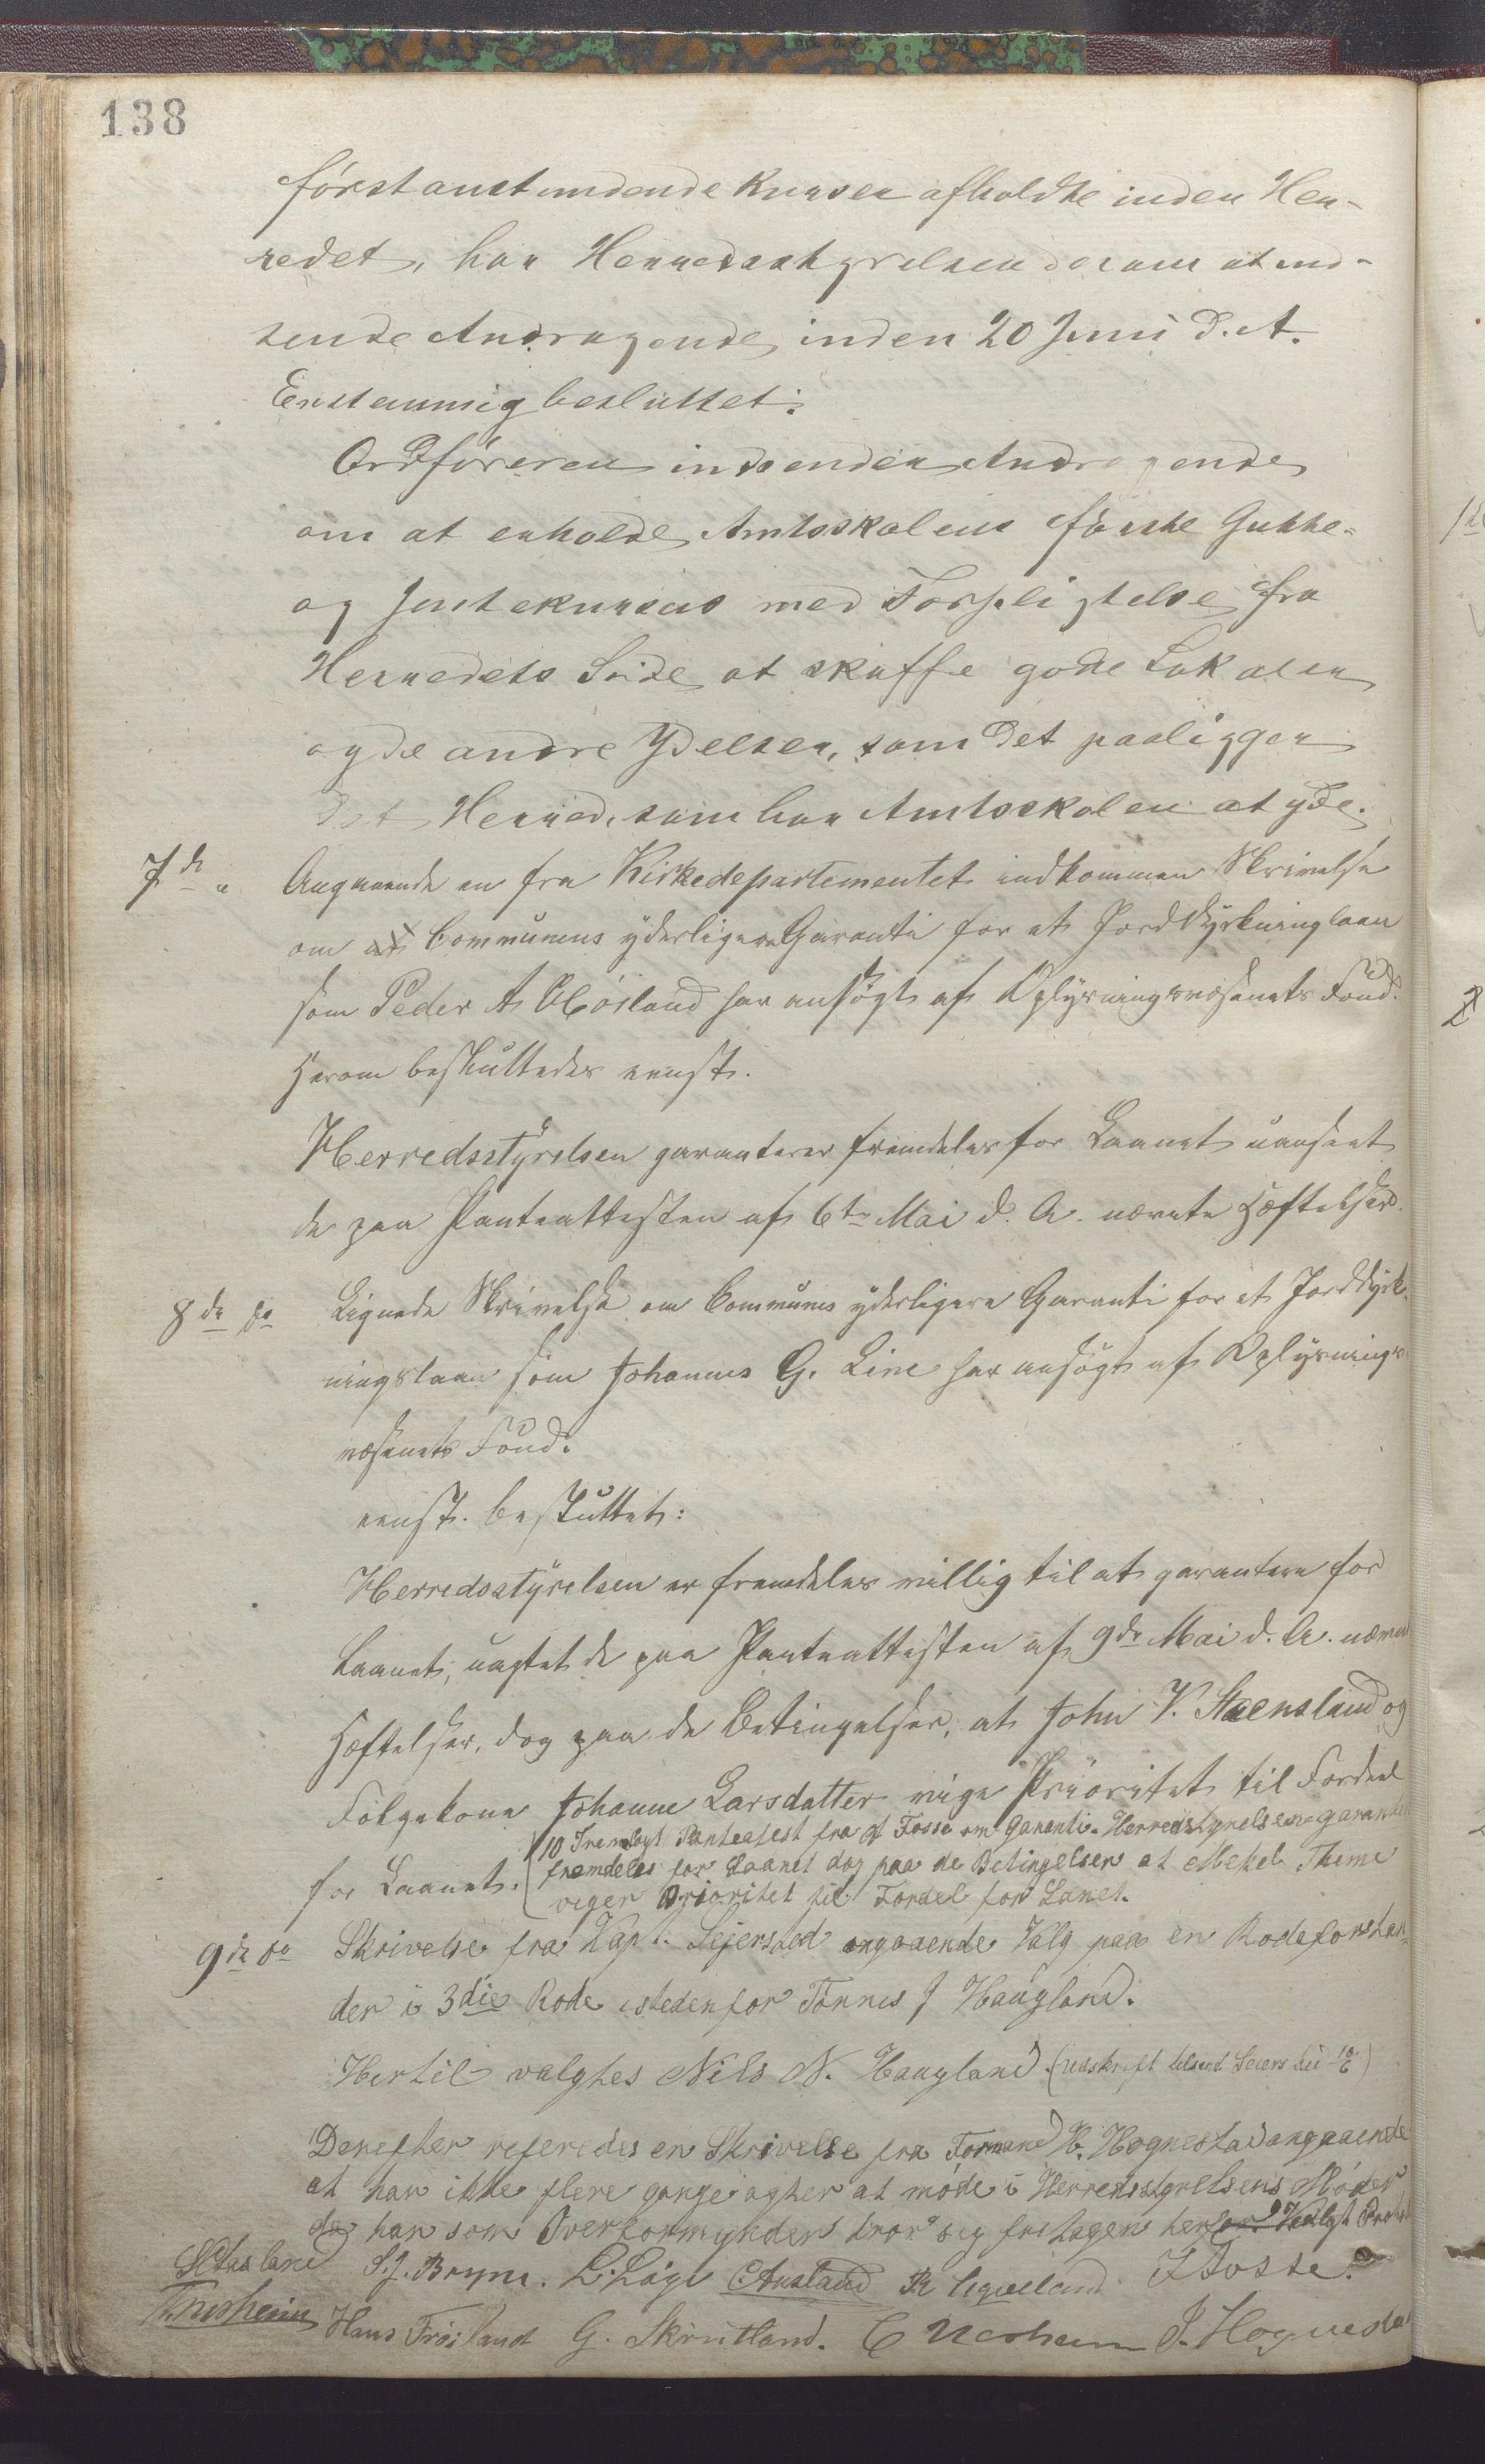 138
förstanstundende Kurser afholdte inden Her-
redet, har Herredsstyrelsen derom at ind-
sende Andragende inden 20 Juni d. A.
Enstemmig besluttet:
Ordföreren indsender Andragende
om at erholde Amtsskolens förste Gutte-
og Jentekursus med Forpligtelse fra
Herredets Side at skaffe gode Lokaler
og de andre Ydelser, som det paaligger
det Herred, som har Amtsskolen at yde.
7de " Angaaende en fra Kirkedepartementet indkommen Skrivelse
om Communens yderligere Garanti for et Jorddyrkningslaan
som Peder A Höiland har ansögt af Oplysningsvæsenets Fond.
Herom besluttedes eenst.
Herredsstyrelsen garanterer fremdeles for Laanet uanseet
de paa Panteattesten af 6te Mai d. A. nævnte Hæftelser.
8de do Lignede Skrivelse om Communens yderligere Garanti for et Jorddyrk-
ningslaan som Johannes G. Line har ansögt af Oplysnings-
væsenets Fond.
eenst. besluttet:
Herredsstyrelsen er fremdeles villig til at garantere for
Laanet, uagtet de paa Panteattesten af 9de Mai d. A. nævnte
Hæftelser, dog paa de Betingelser, at John V. Steensland og
Fölgekone Johanne Larsdatter viger Prioritet til Fordeel
for Laanet.
10 Fremlagt Panteatest fra A Fosse om Garanti. Herredsstyrelsen garanterer
fremdeles for Laanet dog paa de Betingelser at Mekel Thime
viger Prioritet til Fordel for Lanet.
9de do Skrivelse fra Kapt. Sejersted angaaende Valg paa en Rodeforstan-
der i 3die Rode istedenfor Tönnes J Haugland.
Hertil valgtes Nils N. Haugland. (Udskrift tilsent Seiersted 10/6)
Derefter referedes en Skrivelse fra Formand H. Hognestad angaaende
at han ikke flere gange agter at möde i Herredsstyrelsens Möder
da han som Overformynder tror sig fritagen herfor. Valgt
S. J. Bryne. L. Löge C. Aasland Fosse.
Hans Fröiland G. Skrutland. J. Hognestad